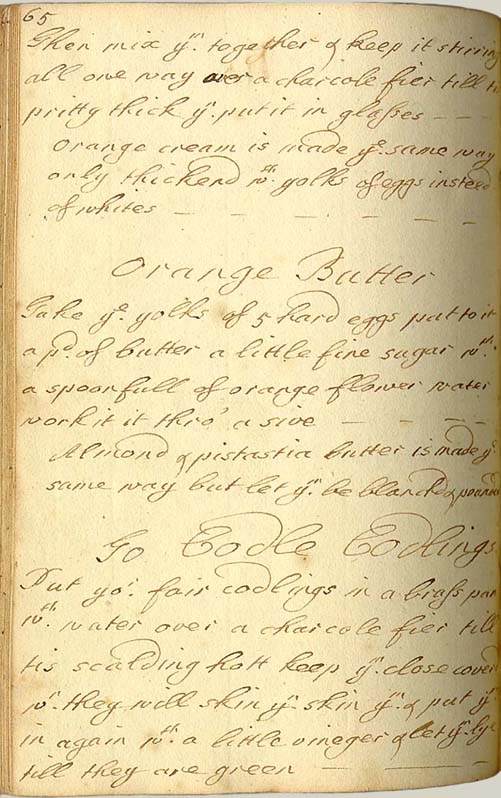 65
Then mix ym. together & keep it stiring
all one way over a charcole fier till tis
pritty thick yn. put it in glasses
Orange cream is made ye. same way
only thickend wth. yolks of eggs insteed
of whites
Orange Butter
Take ye. yolks of 5 hard eggs put to it
a pd. of butter a little fine sugar wth.
a spoonfull of orange flower water
work it it thro' a sive
Almond & pistastia butter is made ye.
same way but let ym. be blancht & pounded
To Codle Codlings
Put yor. fair codlings in a brass pan
wth. water over a charcole fier till
tis scalding hott keep ym. close coverd
wn. they will skin ym. skin ym. & put ym.
in again wth. a little vineger & let ym. lye
till they are green